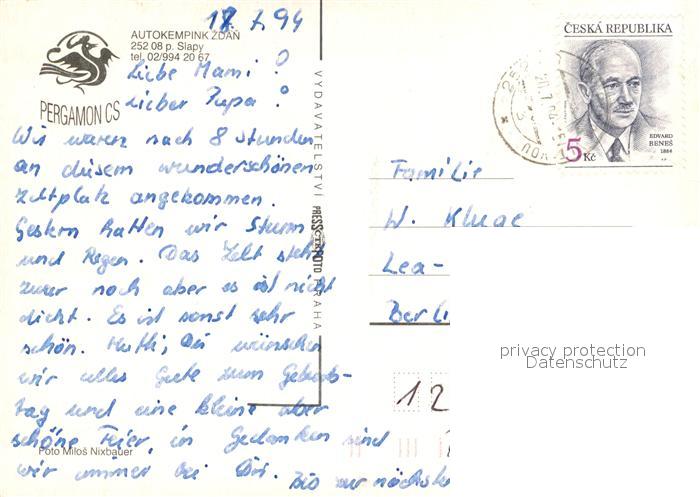 17.7.94
AUTOKEMPINK ŽDÁŇ
252 08 p. Slapy
tel. 02/994 20 67
PERGAMON CS
Liebe Mami!
Lieber Papa!
Wir waren nach 8 Stunden
an diesem wunderschönen
Zeltplatz angekommen.
Gestern hatten wir Sturm
und Regen. Das Zelt steht
zwar noch aber es ist nicht
dicht. Es ist sonst sehr
schön. Mutti, Dir wünschen
wir alles Gute zum Geburts-
tag und eine kleine aber
schöne Feier, in Gedanken sind
wir immer bei Dir. Bis zur nächste
Foto Miloš Nixbauer
VYDAVATELSTVÍ PRESSFOTO PRAHA
ČESKÁ REPUBLIKA
EDVARD
BENEŠ
1884
5 Kč
Familie
W. Kluge
Lea-
Berli
12
privacy protection
Datenschutz